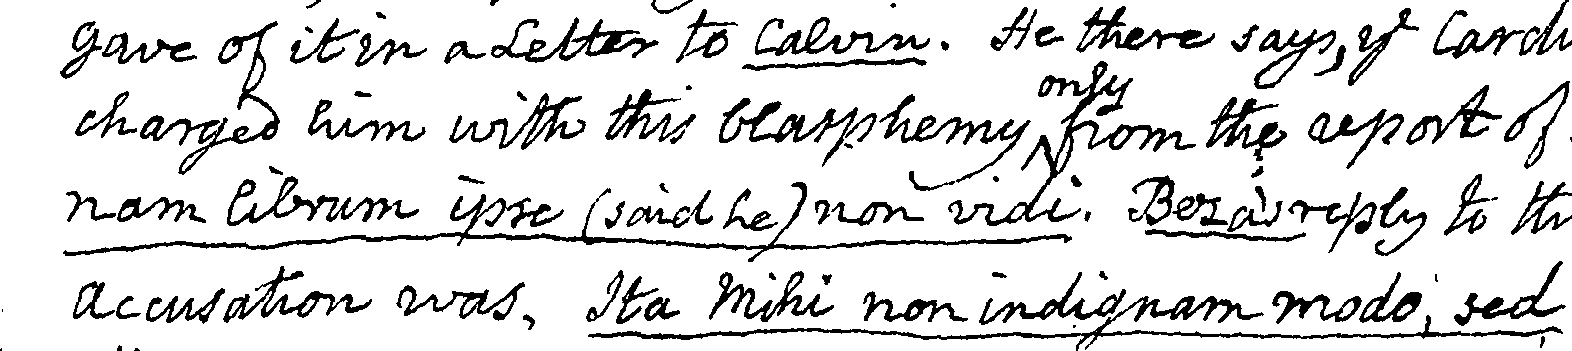 gave of it in a Letter to Calvin. He there says, yt Card
charged him with this blasphemy only from the report of
nam librum ipse (said he) non vidi. Beza's reply to th
accusation was, Ita Mihi non indignam modo, sed